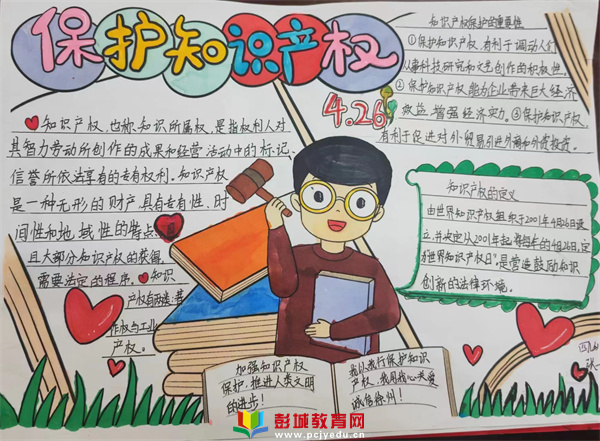 保护知识产权
4.26
知识产权,也称知识所属权,是指权利人对
其智力劳动所创作的成果和经营活动中的标记、
信誉所依法享有的专有权利。知识产权
是一种无形的财产具有专有性、时
间性和地域性的特点
且大部分知识产权的获得
需要法定的程序。知识
产权有两类:著
作权与工业
产权。
知识产权保护的重要性
①保护知识产权,有利于调动人们
从事科技研究和文艺创作的积极性。
②保护知识产权,能为企业带来巨大经济
效益,增强经济实力。③保护知识产权,
有利于促进对外贸易引进外商和外资投资。
知识产权的定义
由世界知识产权组织于2001年4月26日设
立,并决定从2001年起每年的4月26日,定
为世界知识产权日”,是营造鼓励知识
创新的法律环境。
加强知识产权
保护,推进人类文明
的进步!
我认我行保护知识
产权,我用我心
诚信徐州!
彭城教育网
www.pcjyedu.cn